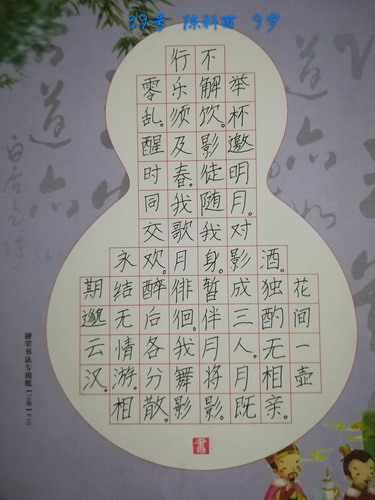 39号 陈科 9岁
花间一壶
酒。独酌无相亲。
举杯邀明月。对影成三人。月既
不解饮。影徒随我身。暂伴月将影
行乐须及春。我歌月徘徊。我舞影
零乱。醒时同交欢。醉后各分散。
永结无情游。相
期邈云汉。
書